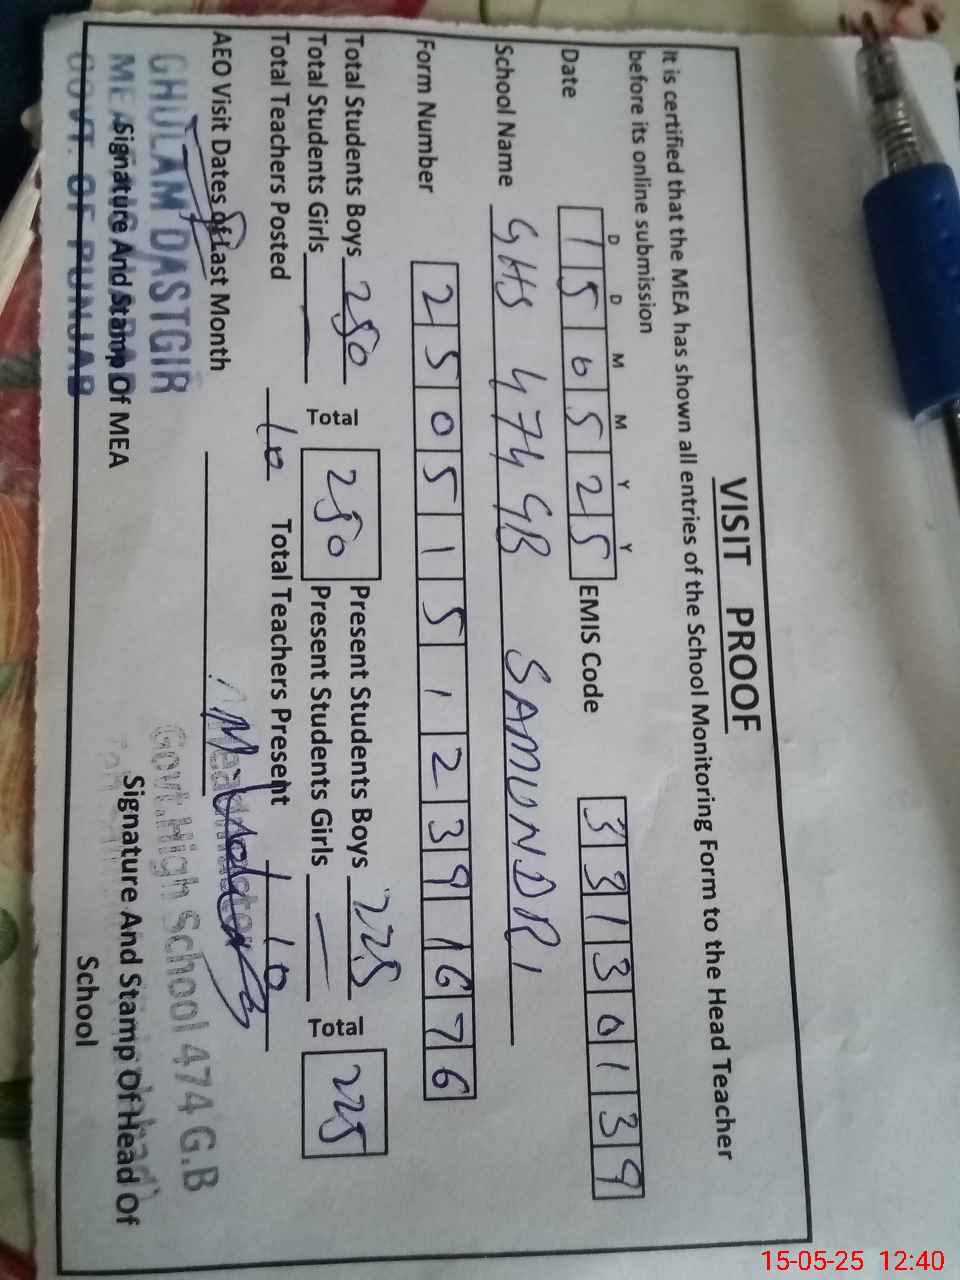 VISIT PROOF
It is certified that the MEA has shown all entries of the School Monitoring Form to the Head Teacher
before its online submission
D D M M Y Y
Date 1 5 0 5 2 5 EMIS Code 3 3 1 3 0 1 3 9
School Name GHS 474 GB SAMUNDRI
Form Number 2 5 0 5 1 5 1 2 3 9 1 6 7 6
Total Students Boys 250 Total 250 Present Students Boys 225 Total 225
Total Students Girls — Present Students Girls —
Total Teachers Posted 10 Total Teachers Present 10
AEO Visit Dates of Last Month
GHULAM DASTGIR
Govt. High School 474 G.B
Signature And Stamp Of MEA
Signature And Stamp Of Head Of
School
GOVT. OF PUNJAB
15-05-25 12:40